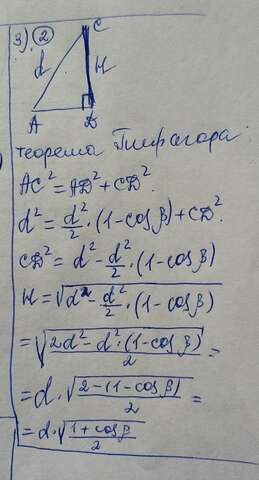 3) 2
C
d
H
A
D
теорема Пифагора:
AC² = AD² + CD².
d² = d²/2 · (1-cos β) + CD².
CD² = d² - d²/2 · (1-cos β)
H = √(d² - d²/2 · (1-cos β)
= √((2d² - d² · (1-cos β))/2) =
= d · √((2-(1-cos β))/2) =
= d · √((1+cos β)/2)